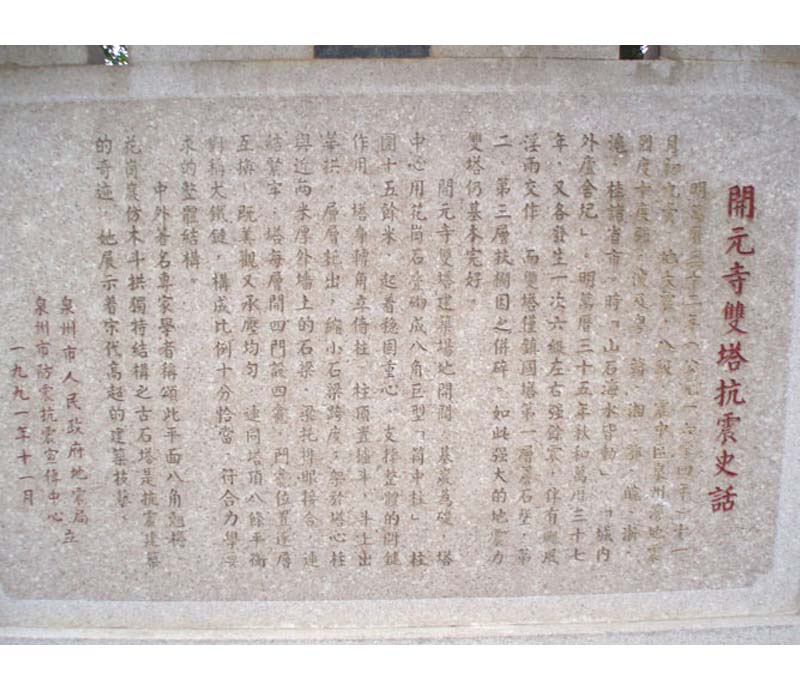 開元寺雙塔抗震史話
明萬曆三十二年（公元一六零四年）十一
月初九夜 地大震 八級 震中區泉州海地震
烈度十度 波及 贛 湘 鄂 皖 浙
滬 桂諸省市。時「山石海水皆動」「城內
外廬舍圮」。明萬曆三十五年秋和萬曆三十七
年，又各發生一次六級左右強餘震，伴有颶風
淫雨交作 而雙塔僅鎮國塔第一層蓋石墜，第
二、第三層扶欄因之併碎。如此强大的地震力
雙塔仍基本完好。
開元寺雙塔建築場地開闊 基 為礎，塔
中心用花崗石疊砌成八角巨型「筒中柱」 柱
圍十五餘米，起着穩固重心，支撐整體的關鍵
作用。塔身轉角立倚柱，柱頂置櫨斗，斗上出
華拱，層層托出，縮小石梁跨度，架於塔心柱
與近兩米厚外墻上的石梁，梁托榫眼接合，連
結緊牢，塔每層開四門設四龕，門龕位置逐層
互換，既美觀又承壓均匀 連同塔頂八條平衡
對稱大鐵鏈，構成比例十分恰當，符合力學要
求的整體結構。
中外著名專家學者稱頌此平面八角
花崗岩仿木斗拱獨特結構之古石塔是抗震建築
的奇迹，她展示着宋代高超的建築技藝。
泉州市人民政府地震局 立
泉州市防震抗震宣傳中心
一九九一年十一月